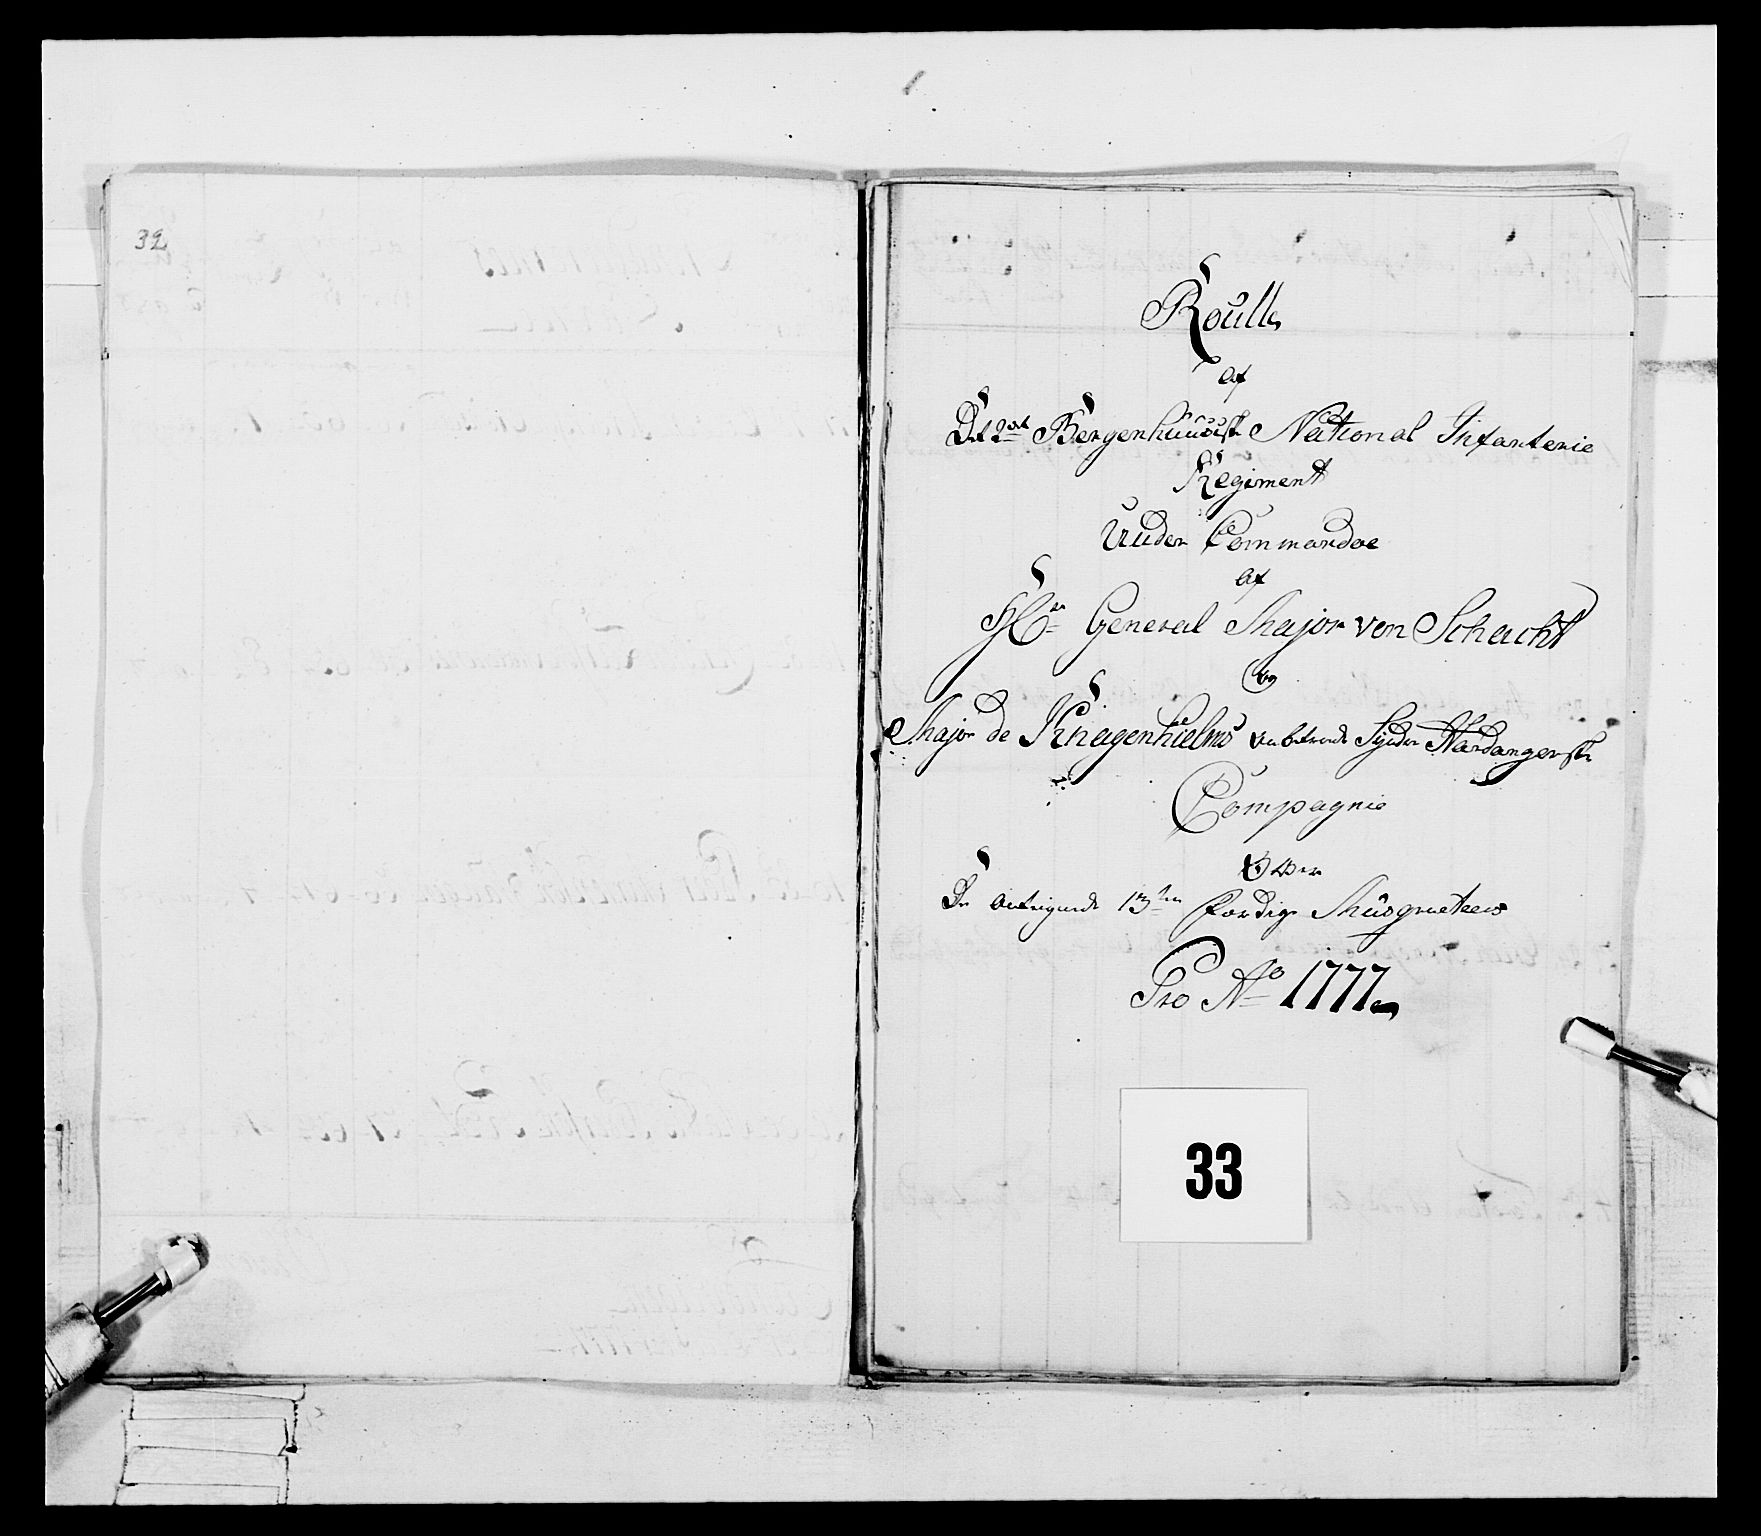 32
Roulle
af
Det 2det Bergenhuusiske National Infanterie
Regiment
Under Commandoe
af
Hr General Major von Schacht
og
Major de Knagenhielms anbetroede Syndre Hardangerske
Compagnie
Over
De 13ten færdige Musqueteers
Pro Ao 1777
33